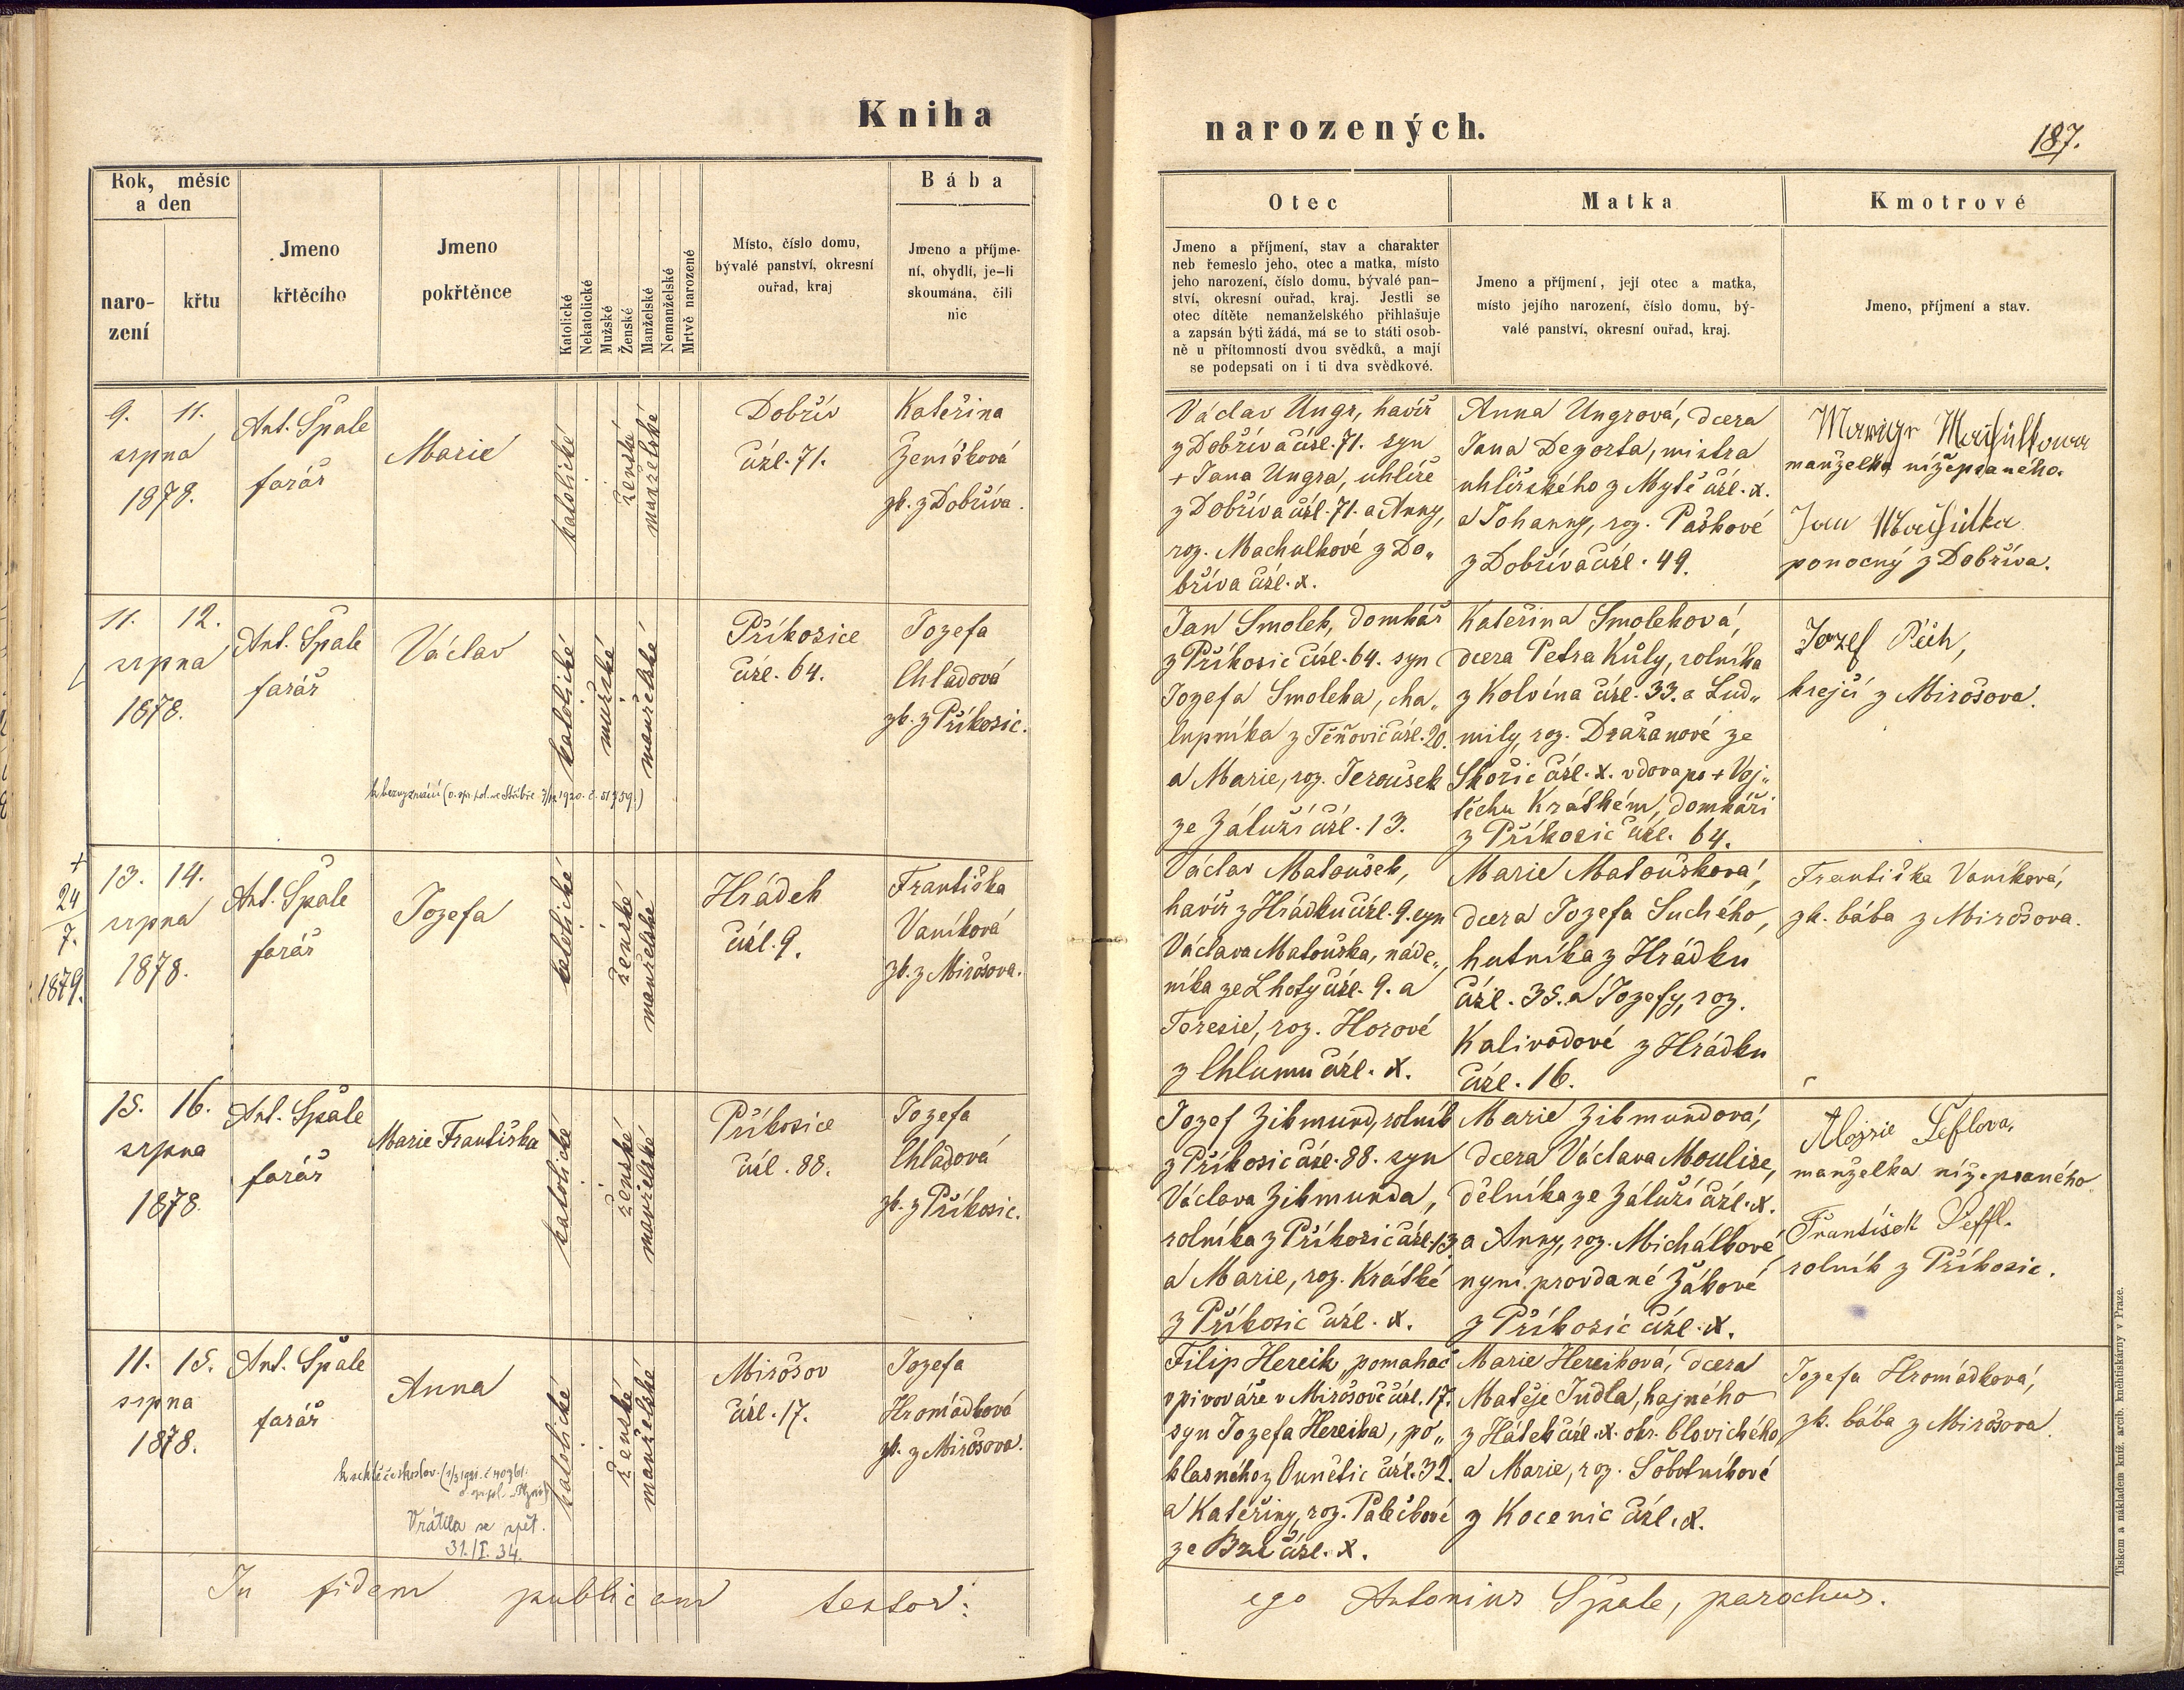 Kniha narozených.
187.
Rok, měsíc
a den
naro-
zení
křtu
Jmeno
křtěcího
Jmeno
pokřtěnce
Katolické
Nekatolické
Mužské
Ženské
Manželské
Nemanželské
Mrtvě narozené
Místo, číslo domu,
bývalé panství, okresní
ouřad, kraj
Bába
Jmeno a příjme-
ní, obydlí, je-li
skoumána, čili
nic
Otec
Jmeno a příjmení, stav a charakter
neb řemeslo jeho, otec a matka, místo
jeho narození, číslo domu, bývalé pan-
ství, okresní ouřad, kraj. Jestli se
otec dítěte nemanželského přihlašuje
a zapsán býti žádá, má se to státi osob-
ně u přítomnosti dvou svědků, a mají
se podepsati on i ti dva svědkové.
Matka
Jmeno a příjmení, její otec a matka,
místo jejího narození, číslo domu, bý-
valé panství, okresní ouřad, kraj.
Kmotrové
Jmeno, příjmení a stav.
9. 11.
srpna
1878.
Ant. Špale
farář
Marie
katolické
ženské
manželské
Dobřív
čísl. 71.
Kateřina
Ženíšková
zk. z Dobříva.
Václav Ungr, havíř
z Dobříva čísl. 71. syn
+ Jana Ungra, uhlíře
z Dobříva čísl. 71. a Anny,
roz. Machulkové z Do„
bříva čísl. x.
Anna Ungrová, dcera
Jana Degorta, mistra
uhlířského z Mytě čísl. x.
a Johanny, roz. Paškové
z Dobříva čísl. 49.
manželka nížepsaného.
Jan
ponocný z Dobříva.
11. 12.
srpna
1878.
Ant. Špale
farář
Václav
k bezvyznání (o. spr. pol. ve Stříbře
katolické
mužské
manželské
Příkosice
čísl. 64.
Jozefa
Chladová
zk. z Příkosic.
Jan Smolek, domkář
z Příkosic čísl. 64. syn
Jozefa Smoleka, cha„
lupníka z Těňovic čísl. 20.
a Marie, roz. Jeroušek
ze Záluží čísl. 13.
Kateřina Smoleková,
dcera Petra Kůly, rolníka
z Kolvína čísl. 33. a Lud„
mily, roz. Dražanové ze
Skořic čísl. x. vdova po + Voj„
těchu Krátkém, domkáři
z Příkosic čísl. 64.
Jozef Pech,
krejčí z Mirošova.
+
24
7.
1879.
13. 14.
srpna
1878.
Ant. Špale
farář
Jozefa
katolické
ženské
manželské
Hrádek
čísl. 9.
Františka
Vaníková
zk. z Mirošova.
Václav Matoušek,
havíř z Hrádku čísl. 9. syn
Václava Matouška, náde„
níka ze Lhoty čísl. 9. a
Teresie, roz. Horové
z Chlumu čísl. x.
Marie Matoušková,
dcera Jozefa Suchého,
hutníka z Hrádku
čísl. 35. a Jozefy, roz.
Kalivodové z Hrádku
čísl. 16.
Františka Vaníková,
zk. bába z Mirošova.
15. 16.
srpna
1878.
Ant. Špale
farář
Marie Františka
katolické
ženské
manželské
Příkosice
čísl. 88.
Jozefa
Chladová
zk. z Příkosic.
Jozef Zikmund, rolník
z Příkosic čísl. 88. syn
Václava Zikmunda,
rolníka z Příkosic čísl. 13
a Marie, roz. Krátké
z Příkosic čísl. x.
Marie Zikmundová,
dcera Václava Moulise,
dělníka ze Záluží čísl. x.
a Anny, roz. Michálkové
nyní provdané Žákové
z Příkosic čísl. x.
Aloizie Šeflova,
manželka nížepsaného
František Šeffl.
rolník z Příkosic.
11. 15.
srpna
1878.
Ant. Špale
farář
Anna
Vrátila se zpět.
31./I. 34.
katolické
ženské
manželské
Mirošov
čísl. 17.
Jozefa
Hromádková
zk. z Mirošova.
Filip Hereik, pomahač
v pivováře v Mirošově čísl. 17.
syn Jozefa Hereika, po„
klasného z Ounětic čísl. 32.
a Kateřiny, roz. Palečkové
ze Bzí čísl. x.
Marie Hereiková, dcera
Matěje Jndla, hajného
z Hátek čísl. x. okr. blovického,
a Marie, roz. Sobotníkové
z Kocenic čísl. x.
Jozefa Hromádková,
zk. bába z Mirošova.
In fidem publicam testor: ego Antonius Špale, parochus.
Tiskem a nákladem kníž. arcib. knihtiskárny v Praze.